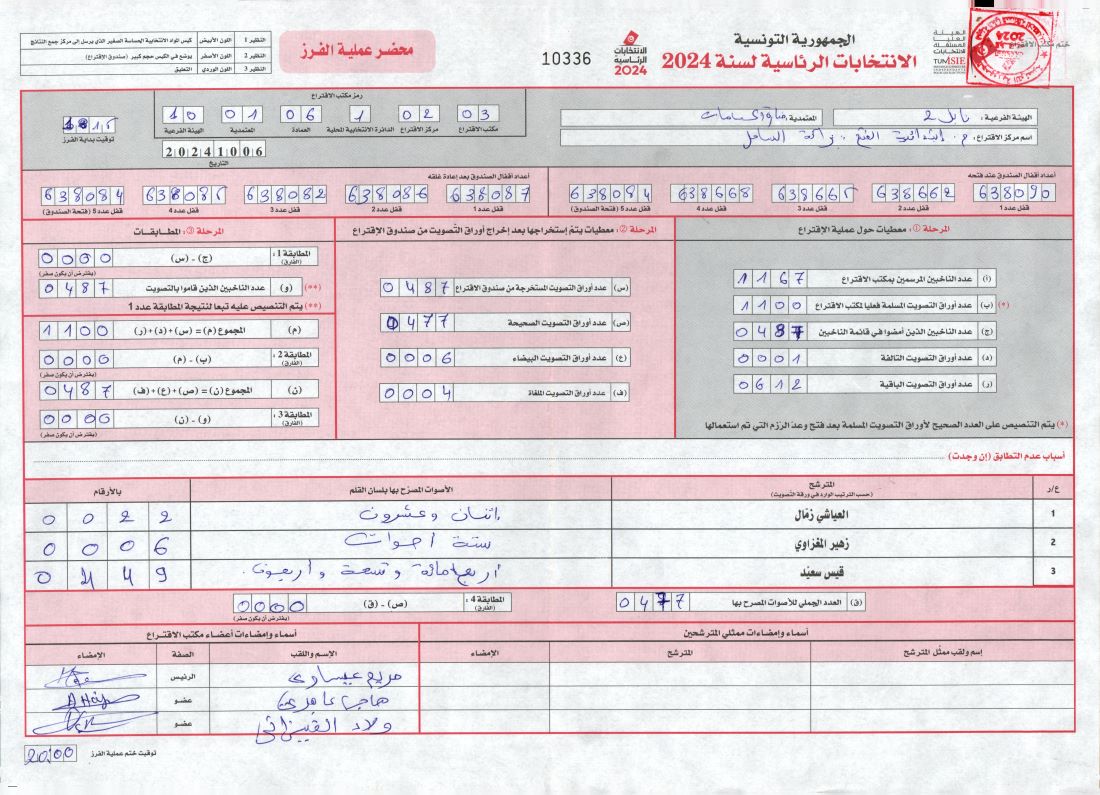 الجمهورية التونسية
الانتخابات الرئاسية لسنة 2024
10336
الانتخابات الرئاسية 2024
الهيئة العليا المستقلة للانتخابات
ختم مكتب الاقتراع
محضر عملية الفرز
النظير 1 اللون الأبيض كيس المواد الانتخابية الحساسة الصغير الذي يرسل الى مركز جمع النتائج
النظير 2 اللون الأصفر يوضع في الكيس حجم كبير (صندوق الاقتراع)
النظير 3 اللون الوردي التعليق
الهيئة الفرعية : نابل 2
المعتمدية :
اسم مركز الاقتراع :
رمز مكتب الاقتراع
10 01 06 1 02 03
الهيئة الفرعية المعتمدية العمادة الدائرة الانتخابية المحلية مركز الاقتراع مكتب الاقتراع
20241006
التاريخ
توقيت بداية الفرز
أعداد أقفال الصندوق عند فتحه
638090 638662 638665 638668 638084
قفل عدد 1 قفل عدد 2 قفل عدد 3 قفل عدد 4 قفل عدد 5 (فتحة الصندوق)
أعداد أقفال الصندوق بعد إعادة غلقه
638087 638086 638082 638085 638084
قفل عدد 1 قفل عدد 2 قفل عدد 3 قفل عدد 4 قفل عدد 5 (فتحة الصندوق)
المرحلة ①: معطيات حول عملية الإقتراع
(أ) عدد الناخبين المرسمين بمكتب الاقتراع 1167
(*) (ب) عدد أوراق التصويت المسلمة فعليا لمكتب الاقتراع 1100
(ج) عدد الناخبين الذين أمضوا في قائمة الناخبين 0487
(د) عدد أوراق التصويت التالفة 0001
(ر) عدد أوراق التصويت الباقية 0612
(*) يتم التنصيص على العدد الصحيح لأوراق التصويت المسلمة بعد فتح وعد الرزم التي تم استعمالها
المرحلة ②: معطيات يتم إستخراجها بعد إخراج أوراق التصويت من صندوق الإقتراع
(س) عدد أوراق التصويت المستخرجة من صندوق الاقتراع 0487
(ص) عدد أوراق التصويت الصحيحة 0477
(ع) عدد أوراق التصويت البيضاء 0006
(ف) عدد أوراق التصويت الملغاة 0004
المرحلة ③: المطابقات
المطابقة 1: (الفارق) (ج) - (س) 0000
(يفترض أن يكون صفر)
(**) (و) عدد الناخبين الذين قاموا بالتصويت 0487
(**) يتم التنصيص عليه تبعا لنتيجة المطابقة عدد 1
(م) المجموع (م) = (س) + (د) + (ر) 1100
المطابقة 2: (الفارق) (ب) - (م) 0000
(يفترض أن يكون صفر)
(ن) المجموع (ن) = (ص) + (ع) + (ف) 0487
المطابقة 3: (الفارق) (و) - (ن) 0000
(يفترض أن يكون صفر)
أسباب عدم التطابق (إن وجدت)
ع/ر المترشح (حسب الترتيب الوارد في ورقة التصويت) الأصوات المصرّح بها بلسان القلم بالأرقام
1 العياشي زمّال إثنان وعشرون 0022
2 زهير المغزاوي ستة أصوات 0006
3 قيس سعيّد أربع مائة وتسعة وأربعون 0449
(ق) العدد الجملي للأصوات المصرح بها 0477
المطابقة 4: (الفارق) (ص) - (ق) 0000
(يفترض أن يكون صفر)
أسماء وإمضاءات ممثلي المترشحين
إسم ولقب ممثل المترشح المترشح الإمضاء
أسماء وإمضاءات أعضاء مكتب الاقتراع
الإسم واللقب الصفة الإمضاء
مريم عيساوي الرئيس
عضو
عضو
توقيت ختم عملية الفرز 20:00